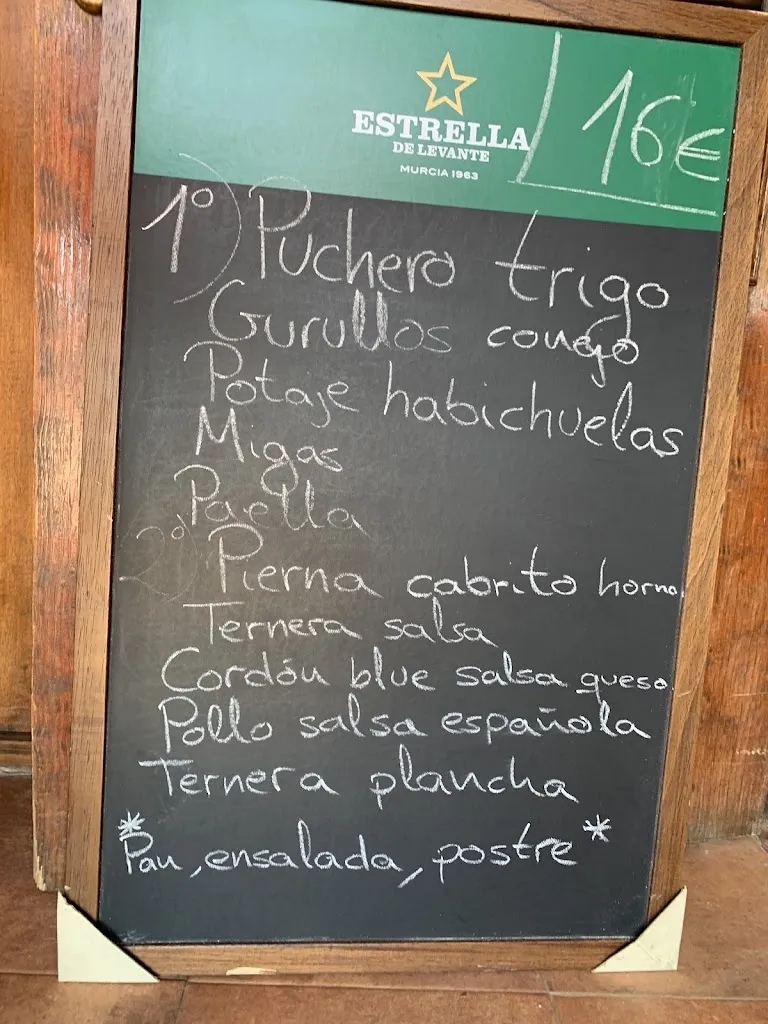 ESTRELLA
DE LEVANTE
MURCIA 1963
16€
1º) Puchero trigo
Gurullos conejo
Potaje habichuelas
Migas
Paella
2º) Pierna cabrito horno
Ternera salsa
Cordón blue salsa queso
Pollo salsa española
Ternera plancha
* Pan, ensalada, postre *